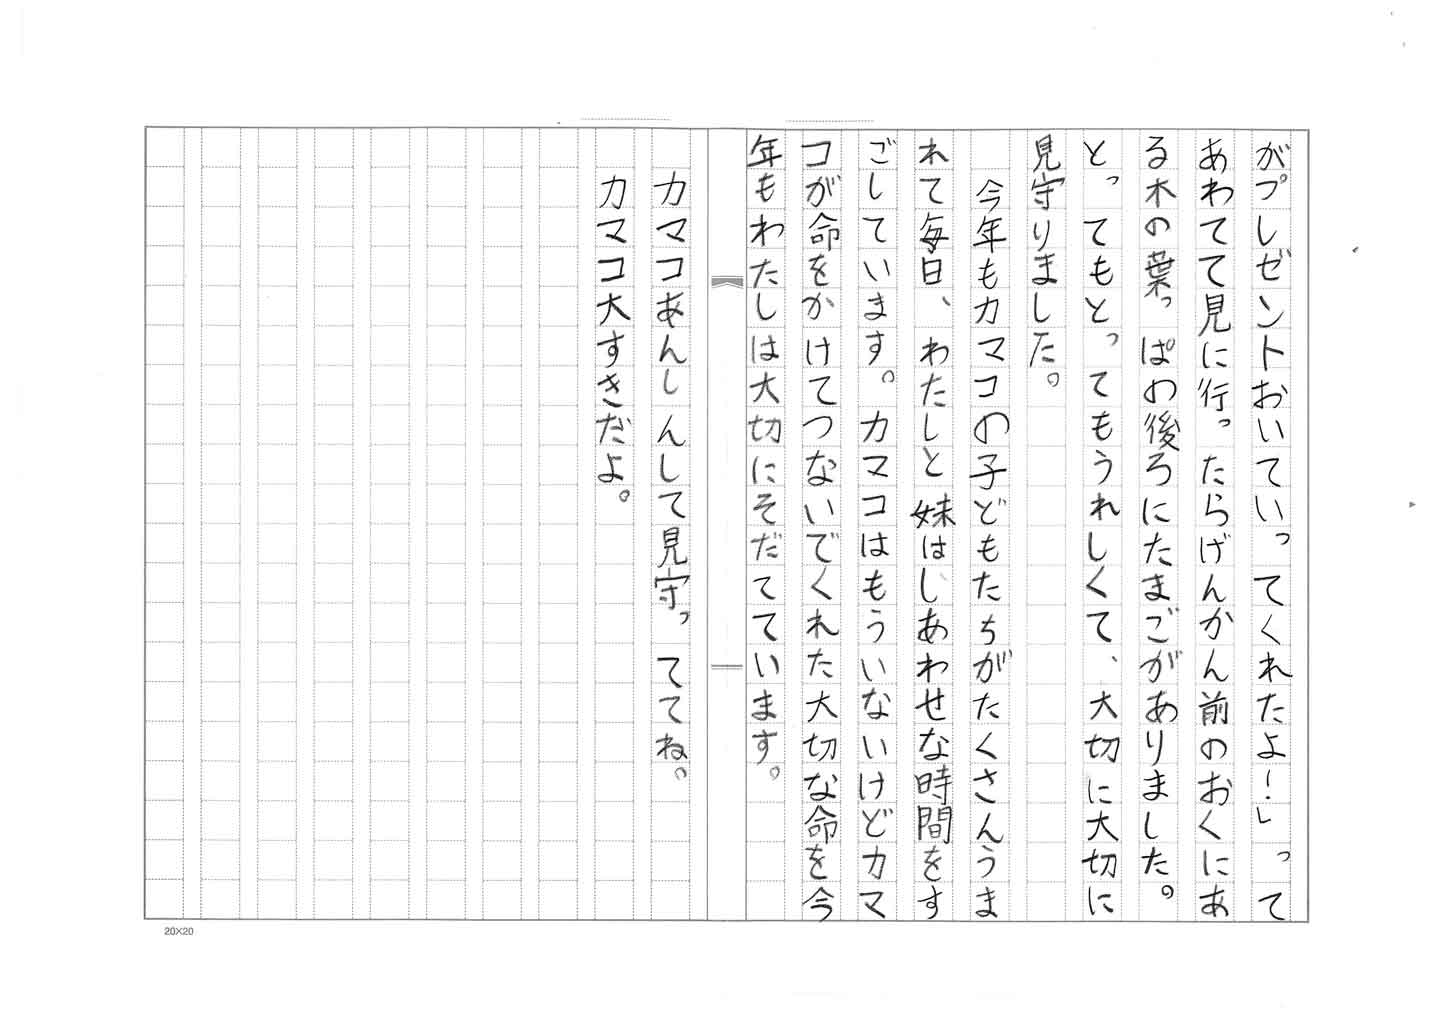 がプレゼントおいていってくれたよ！」って
あわてて見に行ったらげんかん前のおくにあ
る木の葉っぱの後ろにたまごがありました。
とってもとってもうれしくて、大切に大切に
見守りました。
今年もカマコの子どもたちがたくさんうま
れて毎日、わたしと妹はしあわせな時間をす
ごしています。カマコはもういないけどカマ
コが命をかけてつないでくれた大切な命を今
年もわたしは大切にそだてています。
カマコあんしんして見守っててね。
カマコ大すきだよ。
20×20